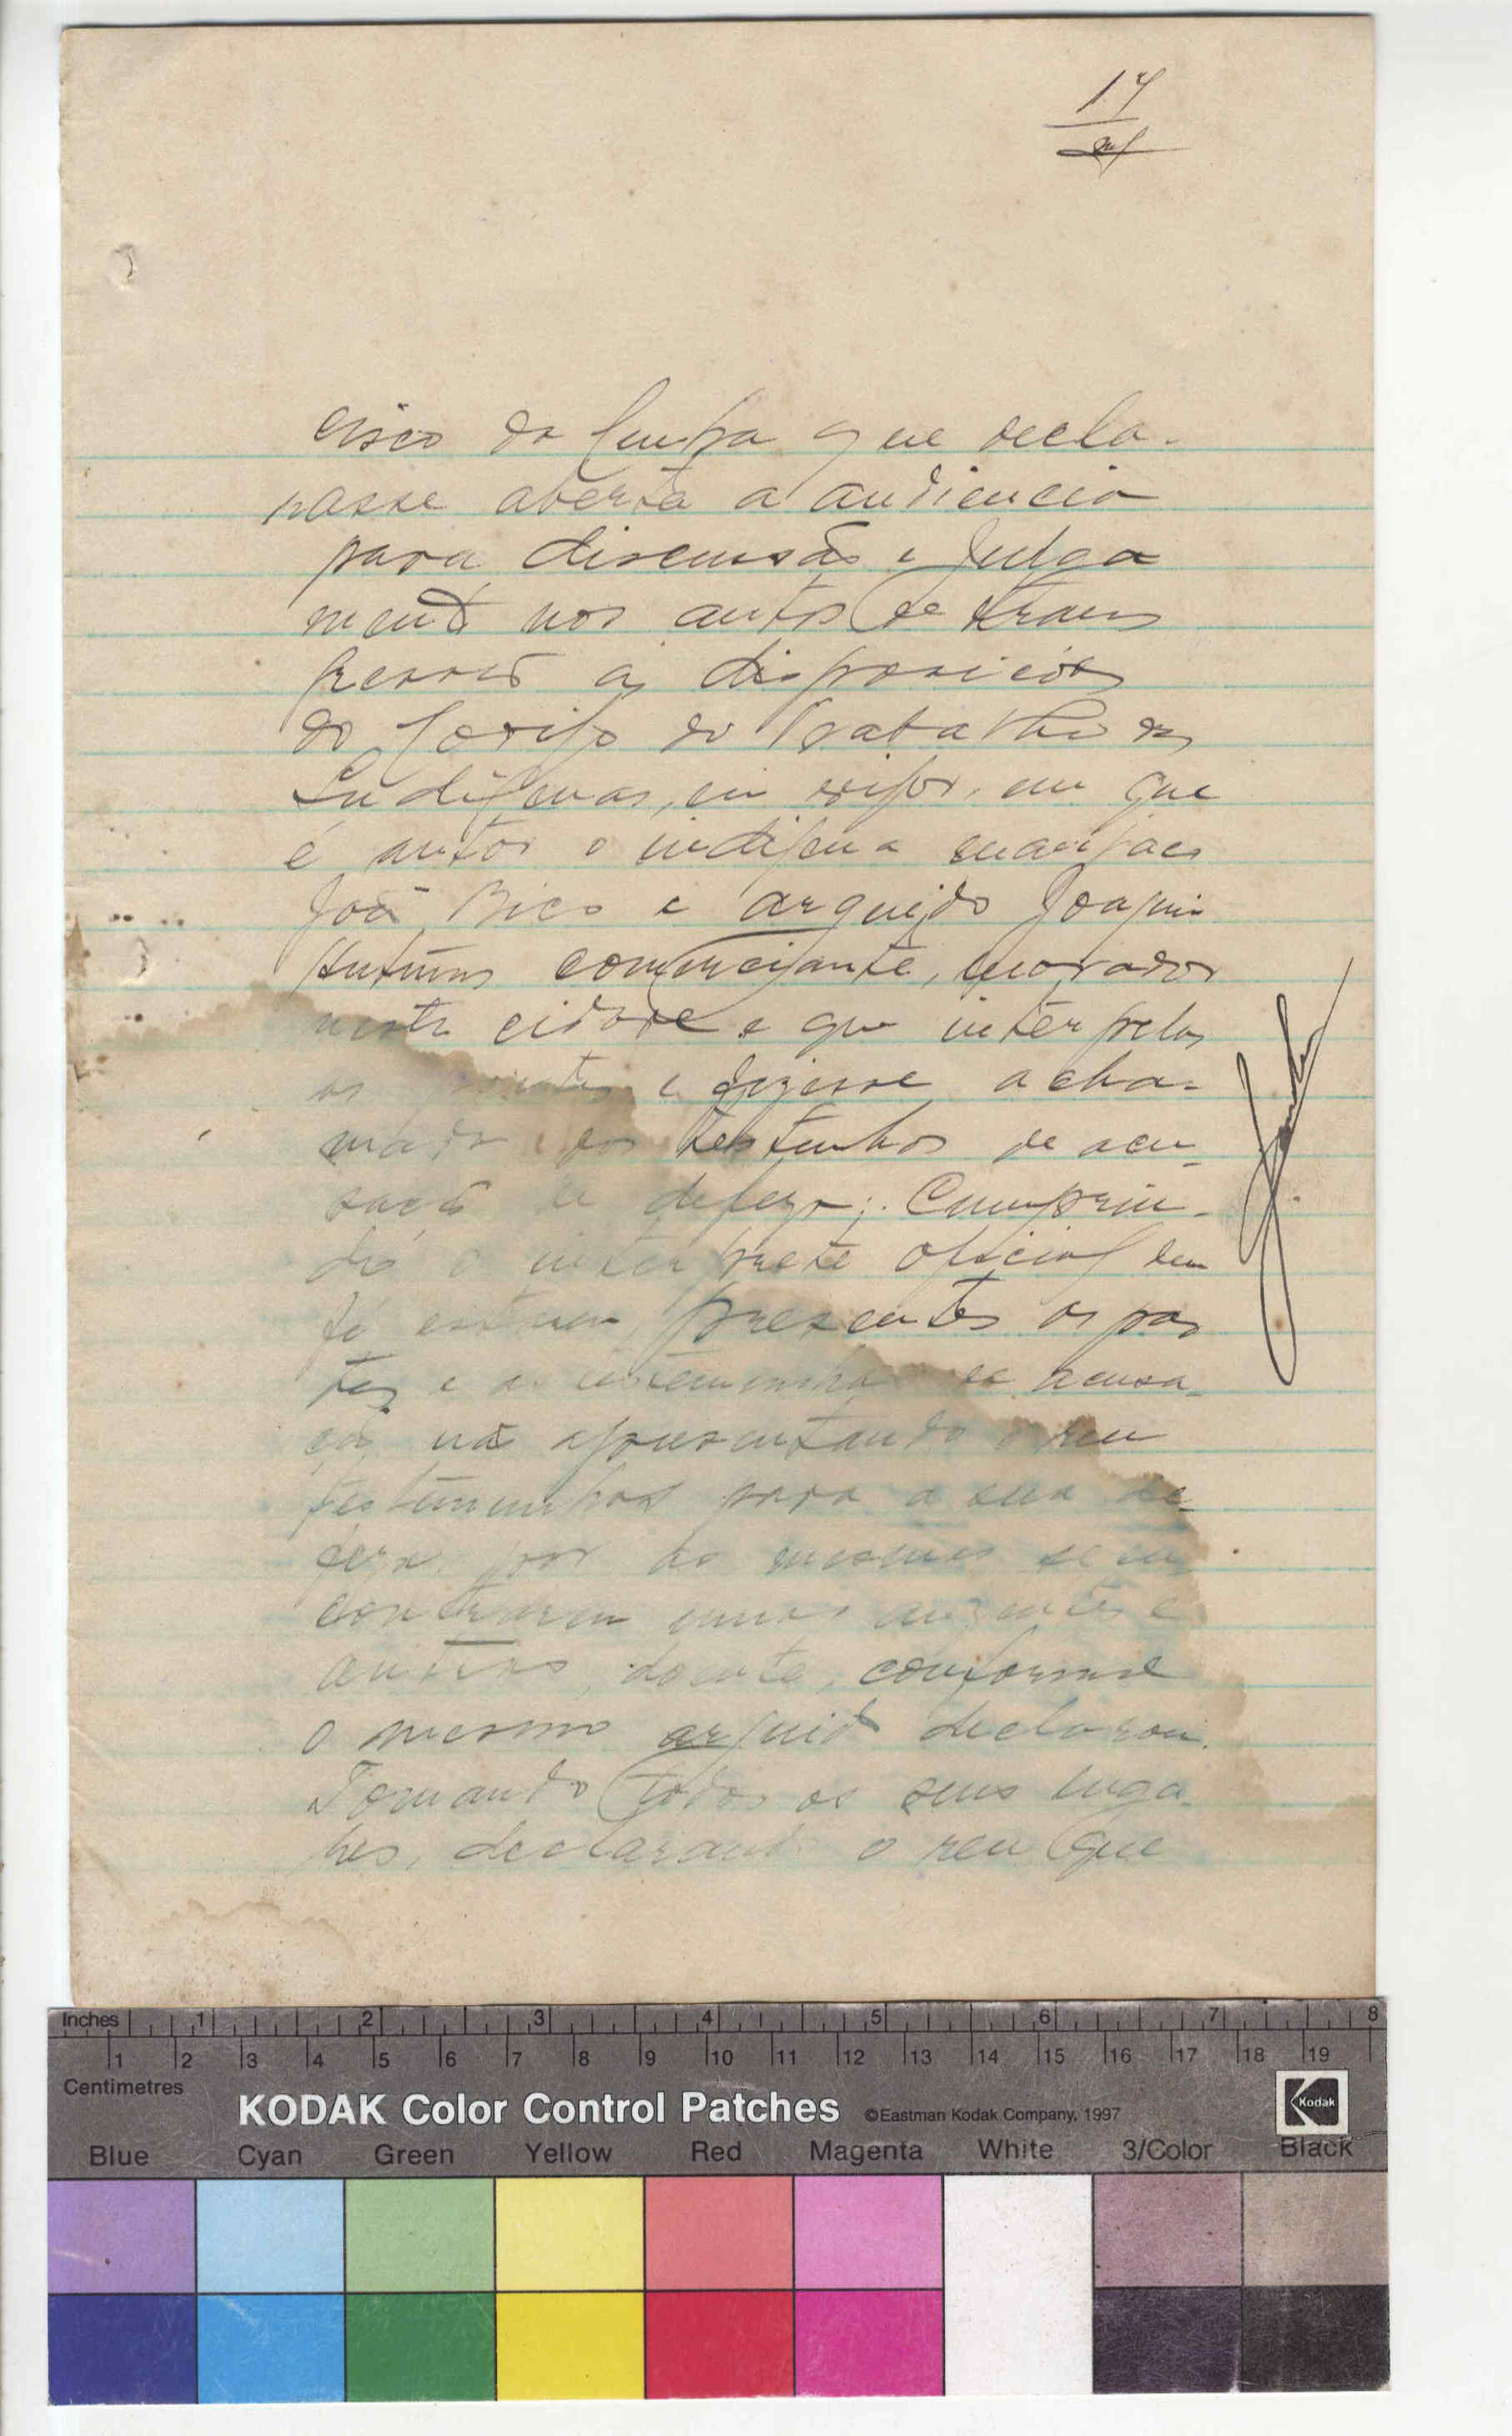 17
cisco da Cunha que decla-
rasse aberta a audiencia
para discussão e julga
mento nos autos de trans
gressão ás disposições
do Codigo do Trabalho dos
Indigenas, em vigor, em que
é autor o indigena
João Bico e arguido Joaquim
Antunes comerciante, morador
nesta cidade e que interpelas
os e fizesse a cha-
mada das testemunhas de acu-
sação e defeza; Cumprin-
do o interprete oficial deu
fé estarem presentes as par
tes e as testemunhas de acusa-
ção não apresentando o reu
testemunhas para a sua de-
feza por as mesmas se en
contrarem umas ausentes e
outras, doente, conforme
o mesmo arguido declarou.
Tomando todos os seus luga-
res, declarando o reu que
Inches 1 2 3 4 5 6 7 8
1 2 3 4 5 6 7 8 9 10 11 12 13 14 15 16 17 18 19
Centimetres
KODAK Color Control Patches ©Eastman Kodak Company, 1997 Kodak
Blue Cyan Green Yellow Red Magenta White 3/Color Black